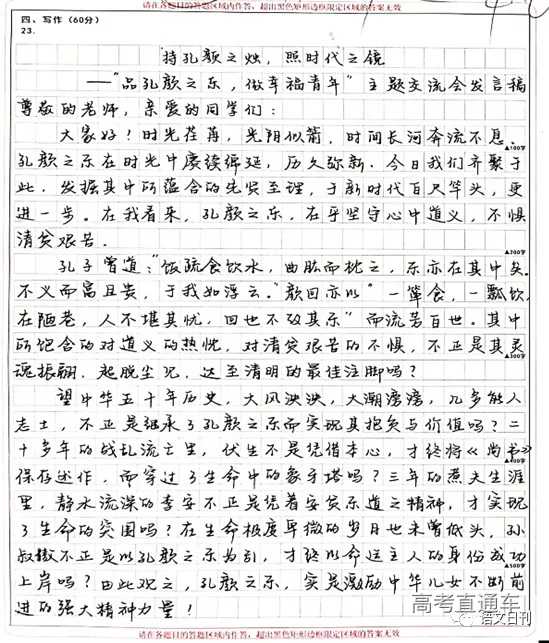 请在各题目的答题区域内作答，超出黑色矩形边框限定区域的答案无效
四、写作（60分）
23.
持孔颜之烛，照时代之镜
——"品孔颜之乐，做幸福青年"主题交流会发言稿
尊敬的老师，亲爱的同学们：
大家好！时光荏苒，光阴似箭，时间长河奔流不息，
▲100字
孔颜之乐在时光中赓续绵延，历久弥新．今日我们齐聚于
此，发掘其中所蕴含的先哲至理，于新时代百尺竿头，更
进一步。在我看来，孔颜之乐，在乎坚守心中道义，不惧
清贫艰苦．
▲200字
孔子曾道："饭疏食饮水，曲肱而枕之，乐亦在其中矣．
不义而富且贵，于我如浮云．"颜回亦以"一箪食，一瓢饮，
在陋巷，人不堪其忧，回也不改其乐"而流芳百世。其中
所饱含的对道义的热忱，对清贫艰苦的不惧，不正是其灵
▲300字
魂振翮，超脱尘氾，达至清明的最佳注脚吗？
望中华五千年历史，大风泱泱，大潮滂滂，几多能人
志士，不正是继承了孔颜之乐而实现其抱负与价值吗？二
十多年的战乱流亡里，伏生不是凭借本心，才终将《尚书》
▲400字
保存述作，而穿过了生命中的象牙塔吗？三年的煮夫生涯
里，静水流深的李安不正是凭着安贫乐道之精神，才实现
了生命的突围吗？在生命极度卑微的岁月也未曾低头，孙
叔敖不正是以孔颜之乐为引，才终以命运主人的身份成功
▲500字
上岸吗？由此观之，孔颜之乐，实是激励中华儿女不断前
进的强大精神力量！
高考直通车
语文日刊
请在各题目的答题区域内作答，超出黑色矩形边框限定区域的答案无效